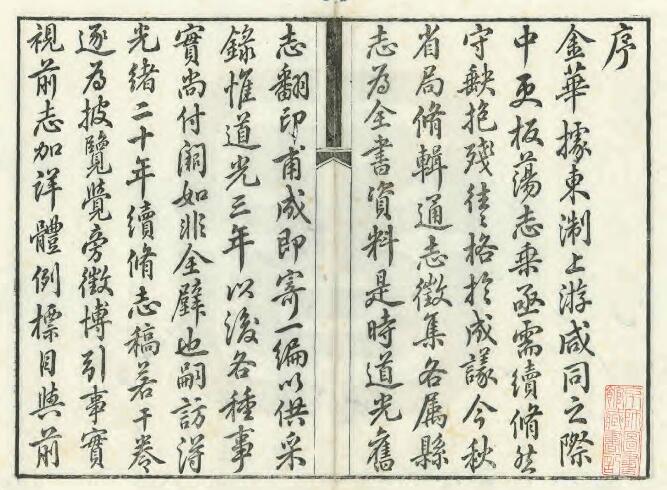 序
金華據東浙上游咸同之際
中更板蕩志乘亟需續脩然
守缺抱殘往〻格於成議今秋
省局脩輯通志徵集各属縣
志為全書資料是時道光舊
志翻印甫成即寄一編以供采
錄惟道光三年以後各種事
實尚付闕如非全璧也嗣訪得
光緒二十年續脩志稿若干卷
逐為披覽覺旁徵博引事實
視前志加詳體例標目與前